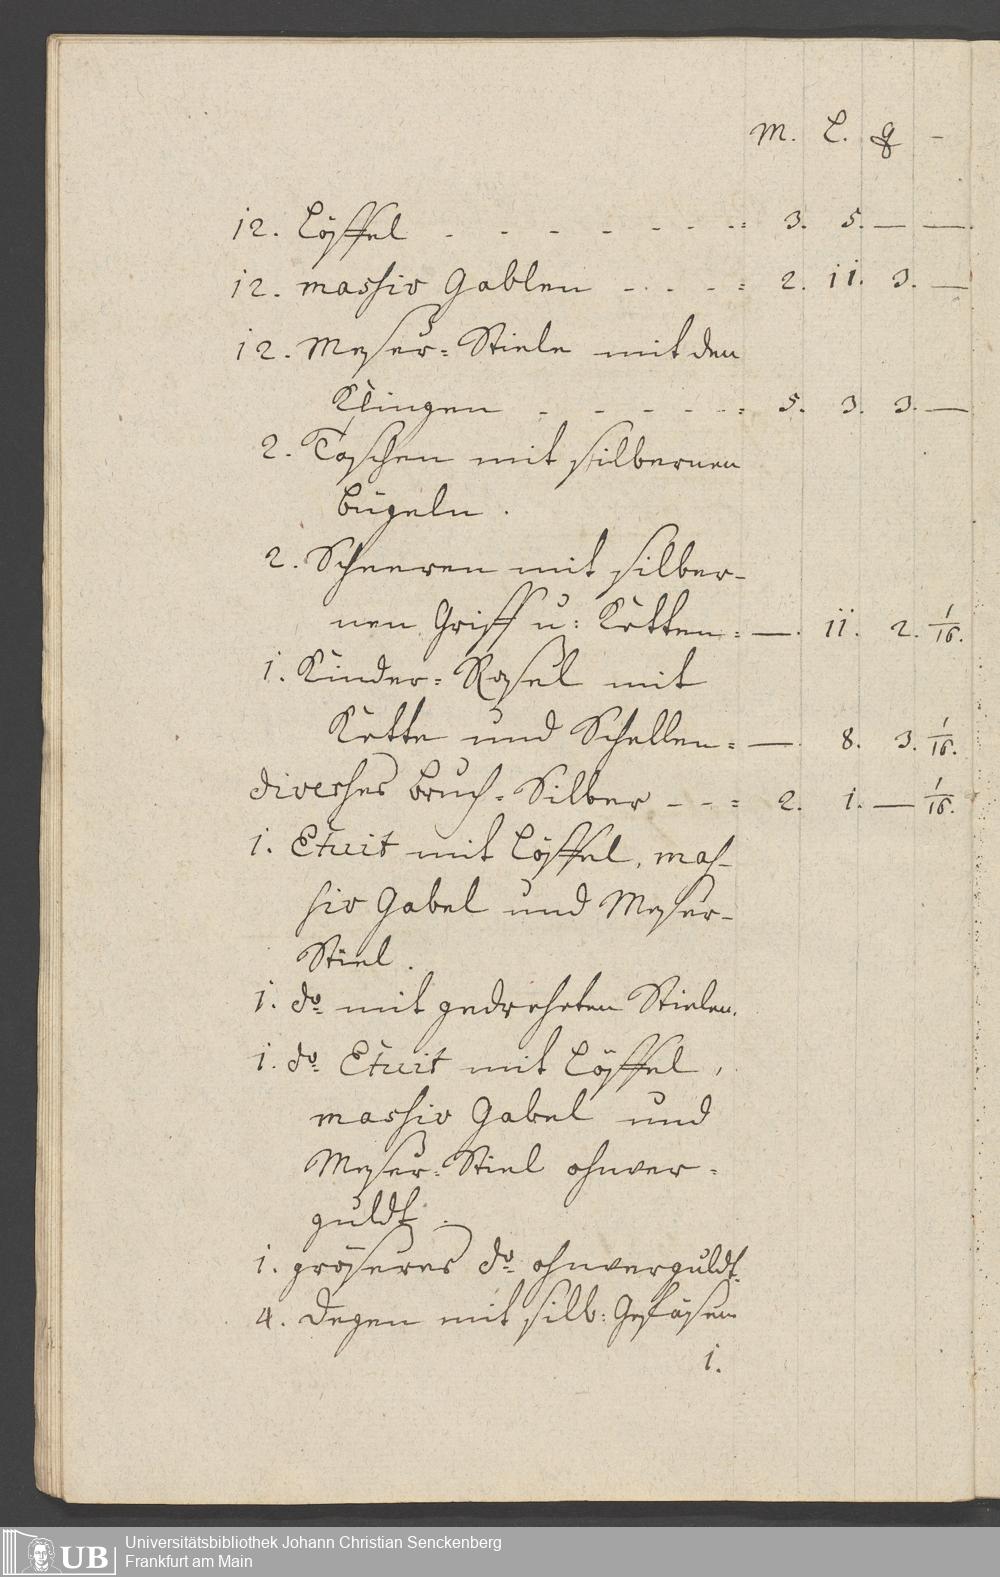 M. L. q –
12. Löffel - - - - - - -.= 3. 5. — —.
12. massiv Gablen - . - . = 2. 11. 3. —
12. Meser=Stiele mit den
Klingen - - - - -= 5. 3. 3. —
2. Taschen mit silbernen
Bügeln .
2. Scheeren mit silber-
nen Griff u: Ketten = —. 11. 2. 1/16.
1. Kinder=Rasel mit
Kette und Schellen = —. 8. 3. 1/16.
diverses Bruch=Silber - - = 2. 1. — 1/16.
1. Etuit mit Löffel, mas-
siv Gabel und Meser-
Stiel.
1. do. mit gedreheten Stielen.
1. do. Etuit mit Löffel,
massiv Gabel und
Meser=Stiel ohnver=
guldt.
1. gröseres do. ohnverguldt.
4. Degen mit silb: Gefäsen
1.
UB
Universitätsbibliothek Johann Christian Senckenberg
Frankfurt am Main